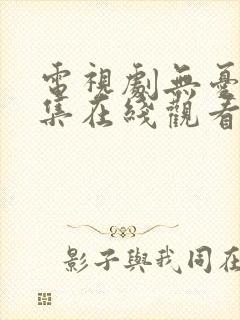 電視劇無憂
集在綫觀看
影子與我同在